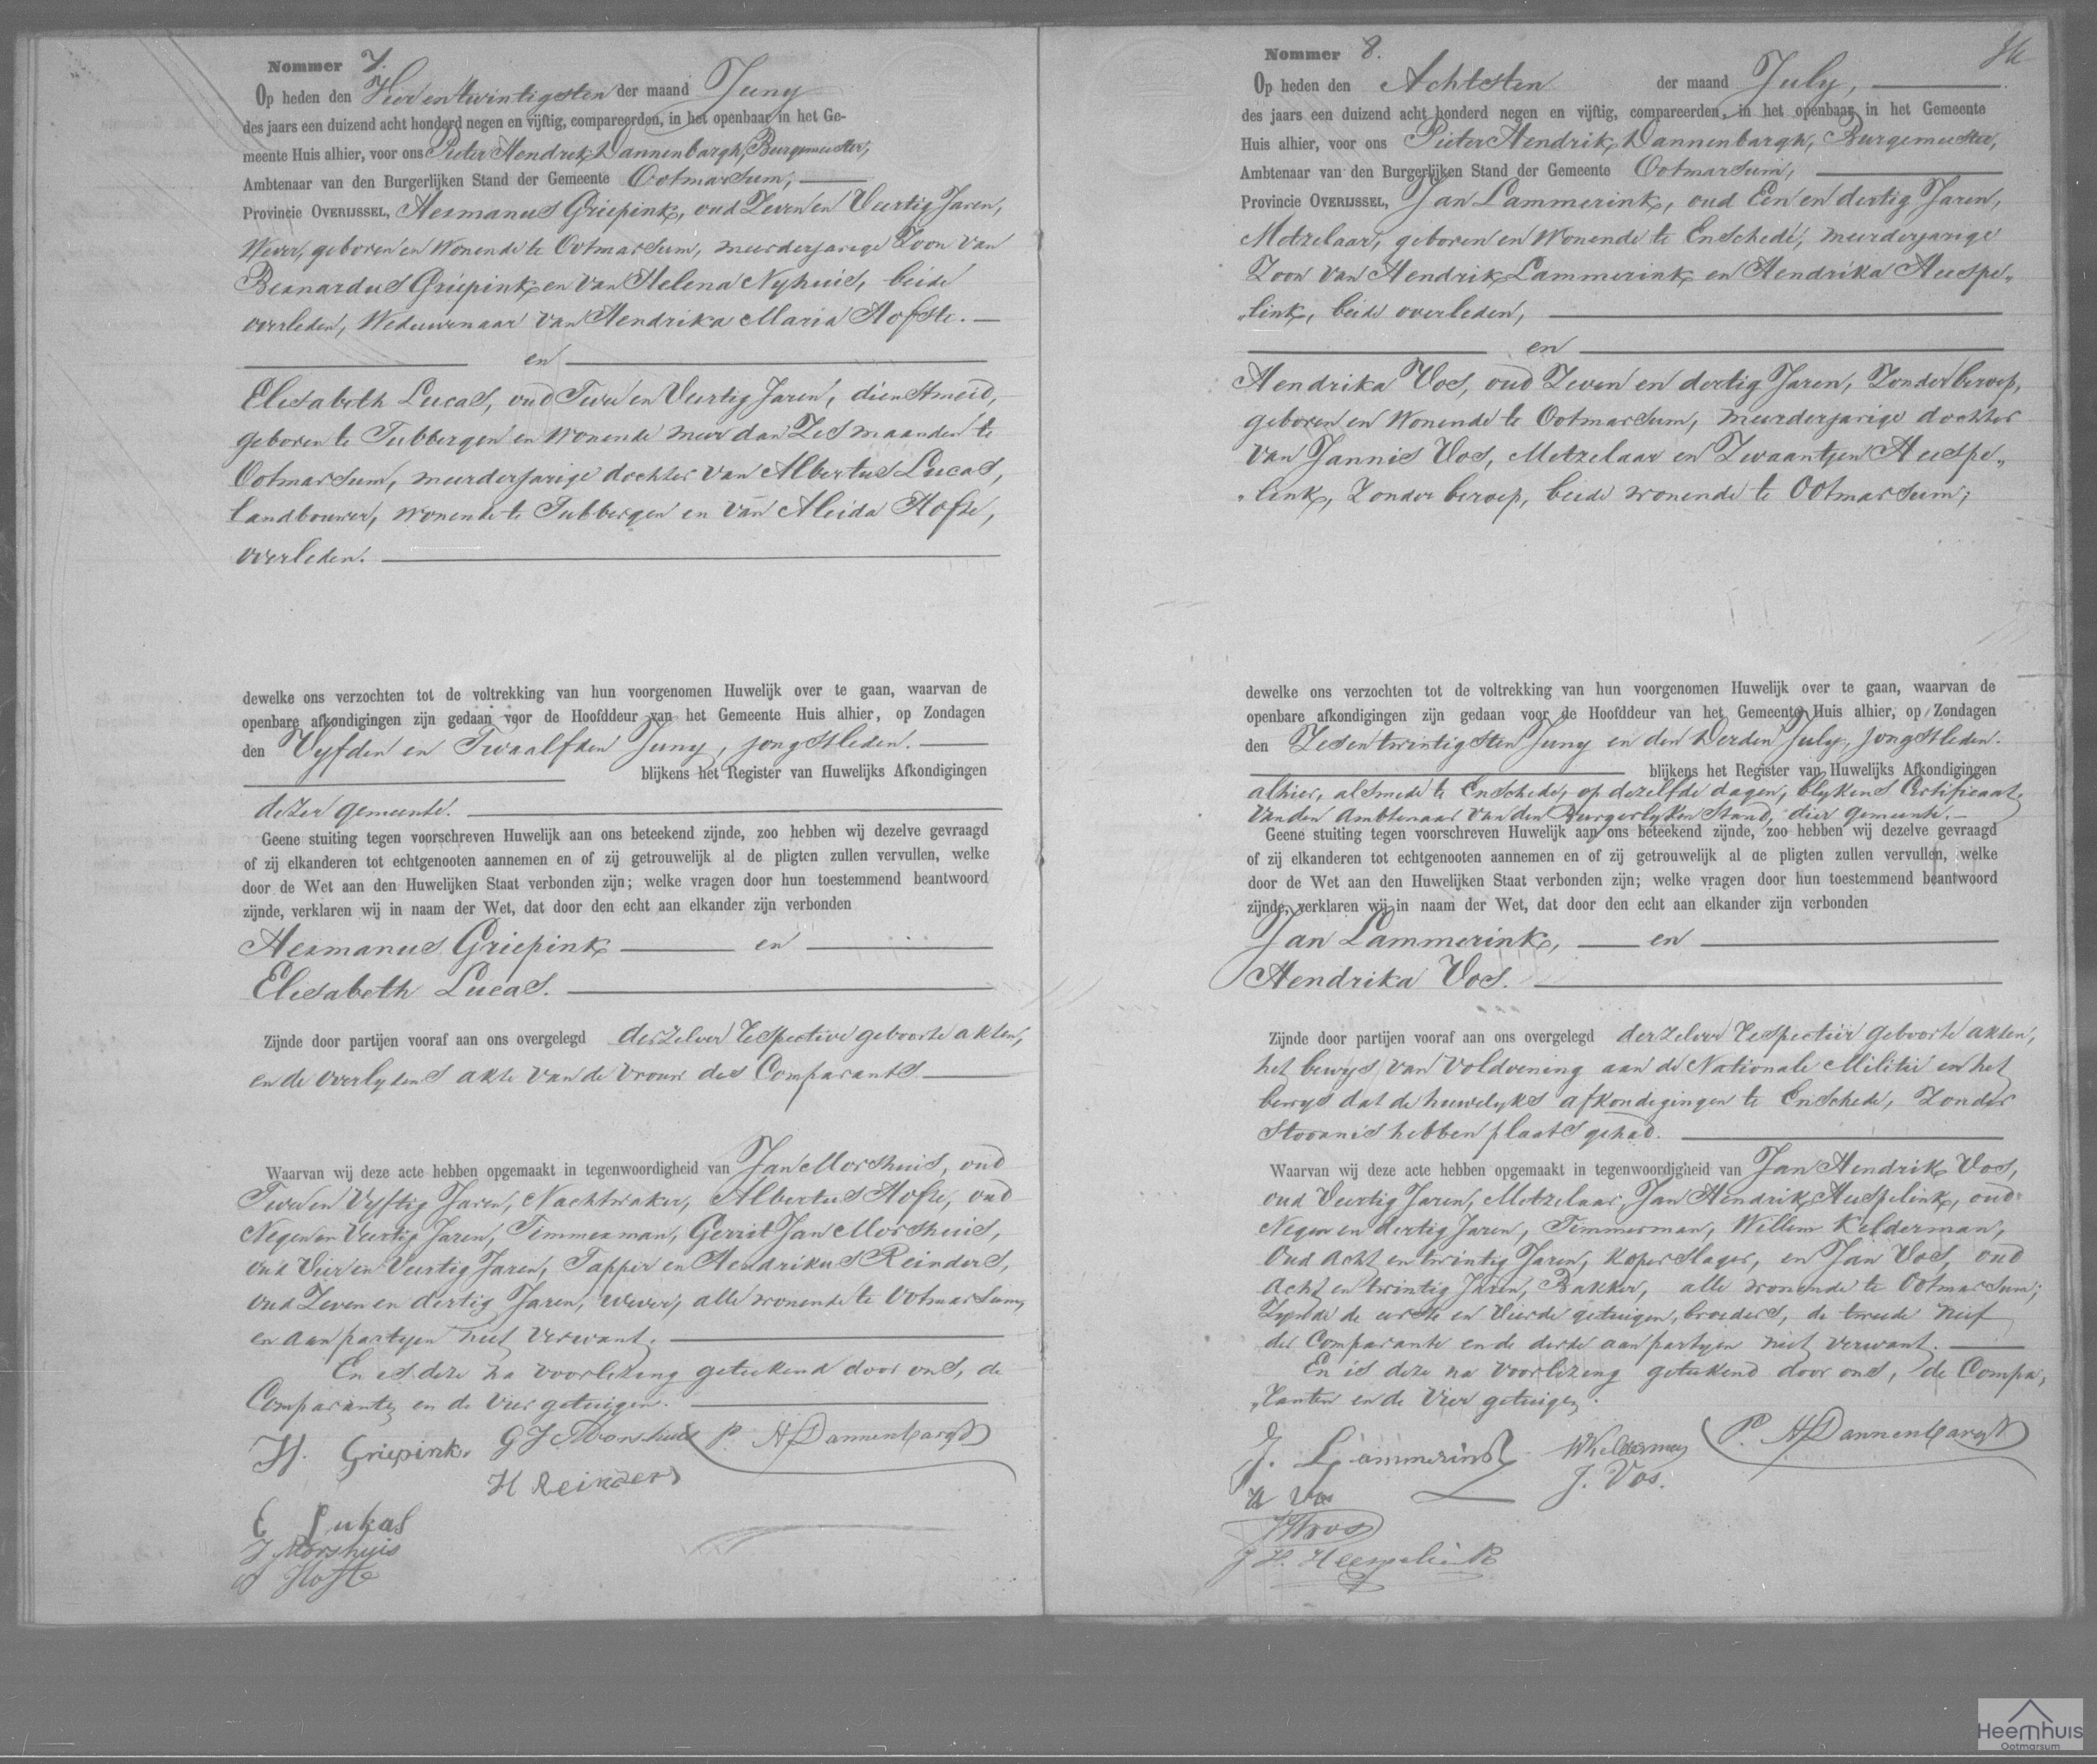 Nommer 7.
Op heden den Vier en twintigsten der maand Juny
des jaars een duizend acht honderd negen en vijftig, compareerden, in het openbaar in het Ge-
meente Huis alhier, voor ons Pieter Hendrik Dannenbargh, Burgemeester,
Ambtenaar van den Burgerlijken Stand der Gemeente Ootmarsum,
Provincie OVERIJSSEL, Hermanus Griepink, oud Zeven en Veertig Jaren,
Wever, geboren en Wonende te Ootmarsum, meerderjarige Zoon van
Bernardus Griepink en van Helena Nyhuis, beide
overleden, Weduwenaar van Hendrika Maria Hofste.
en
Elisabeth Lucas, oud Twee en Veertig Jaren, dienstmeid,
geboren te Tubbergen en Wonende meer dan Zes maanden te
Ootmarsum, meerderjarige dochter van Albertus Lucas,
landbouwer, wonende te Tubbergen en van Aleida Hofste,
overleden.
dewelke ons verzochten tot de voltrekking van hun voorgenomen Huwelijk over te gaan, waarvan de
openbare afkondigingen zijn gedaan voor de Hoofddeur van het Gemeente Huis alhier, op Zondagen
den Vyfden en Twaalfden Juny, jongstleden.
blijkens het Register van Huwelijks Afkondigingen
dezer gemeente.
Geene stuiting tegen voorschreven Huwelijk aan ons beteekend zijnde, zoo hebben wij dezelve gevraagd
of zij elkanderen tot echtgenooten aannemen en of zij getrouwelijk al de pligten zullen vervullen, welke
door de Wet aan den Huwelijken Staat verbonden zijn; welke vragen door hun toestemmend beantwoord
zijnde, verklaren wij in naam der Wet, dat door den echt aan elkander zijn verbonden
Hermanus Griepink en
Elisabeth Lucas.
Zijnde door partijen vooraf aan ons overgelegd derzelver respective geboorte akten,
en de overlydens akte van de vrouw des Comparants.
Waarvan wij deze acte hebben opgemaakt in tegenwoordigheid van Jan Morshuis, oud
Twee en Vyftig Jaren, Nachtwaker, Albertus Hofste, oud
Negen en Veertig Jaren, Timmerman, Gerrit Jan Morshuis,
oud Vier en Veertig Jaren, Tapper en Hendrikus Reinders,
oud Zeven en dertig Jaren, wever, alle wonende te Ootmarsum,
en aan partyen niet verwant.
En is deze na voorlezing geteekend door ons, de
Comparanten en de vier getuigen.
H. Griepink. G J Morshuis P. H Dannenbargh
H Reinders
E Lukas
J Morshuis
A Hofste
Nommer 8.
Op heden den Achtsten der maand July,
des jaars een duizend acht honderd negen en vijftig, compareerden, in het openbaar in het Gemeente
Huis alhier, voor ons Pieter Hendrik Dannenbargh, Burgemeester,
Ambtenaar van den Burgerlijken Stand der Gemeente Ootmarsum,
Provincie OVERIJSSEL, Jan Lammerink, oud Een en dertig Jaren,
Metzelaar, geboren en Wonende te Enschedé, meerderjarige
Zoon van Hendrik Lammerink en Hendrika Heespe„
„link, beide overleden,
en
Hendrika Vos, oud Zeven en dertig Jaren, Zonder beroep,
geboren en Wonende te Ootmarsum, meerderjarige dochter
van Jannis Vos, Metzelaar en Zwaantjen Heespe„
„link, Zonder beroep, beide wonende te Ootmarsum;
dewelke ons verzochten tot de voltrekking van hun voorgenomen Huwelijk over te gaan, waarvan de
openbare afkondigingen zijn gedaan voor de Hoofddeur van het Gemeente Huis alhier, op Zondagen
den Zesentwintigsten Juny en den Derden July, jongstleden.
blijkens het Register van Huwelijks Afkondigingen
alhier, alsmede te Enschedé, op dezelfde dagen, blykens Certificaat
van den Ambtenaar van den Burgerlyken Stand, dier gemeente.
Geene stuiting tegen voorschreven Huwelijk aan ons beteekend zijnde, zoo hebben wij dezelve gevraagd
of zij elkanderen tot echtgenooten aannemen en of zij getrouwelijk al de pligten zullen vervullen, welke
door de Wet aan den Huwelijken Staat verbonden zijn; welke vragen door hun toestemmend beantwoord
zijnde, verklaren wij in naam der Wet, dat door den echt aan elkander zijn verbonden
Jan Lammerink, en
Hendrika Vos.
Zijnde door partijen vooraf aan ons overgelegd derzelver respective geboorte akten,
het bewys van voldoening aan de Nationale Militie en het
bewys dat de huwelyks afkondigingen te Enschede, Zonder
Stoornis hebben plaats gehad.
Waarvan wij deze acte hebben opgemaakt in tegenwoordigheid van Jan Hendrik Vos,
oud Veertig Jaren, Metzelaar, Jan Hendrik Heespelink, oud
Negen en dertig Jaren, Timmerman, Willem Kelderman,
oud Acht en twintig Jaren, Koperslager, en Jan Vos, oud
Acht en twintig Jaren, Bakker, alle wonende te Ootmarsum;
Zynde de eerste en vierde getuigen, broeders, de tweede neef
der Comparante en de derde aan partyen niet verwant.
En is deze na voorlezing geteekend door ons, de Compa„
„ranten en de vier getuigen.
J. Lammerink WKelderman P. H Dannenbargh
H Vos J. Vos.
JHVos
J H. Heespelink
Heemhuis
Ootmarsum